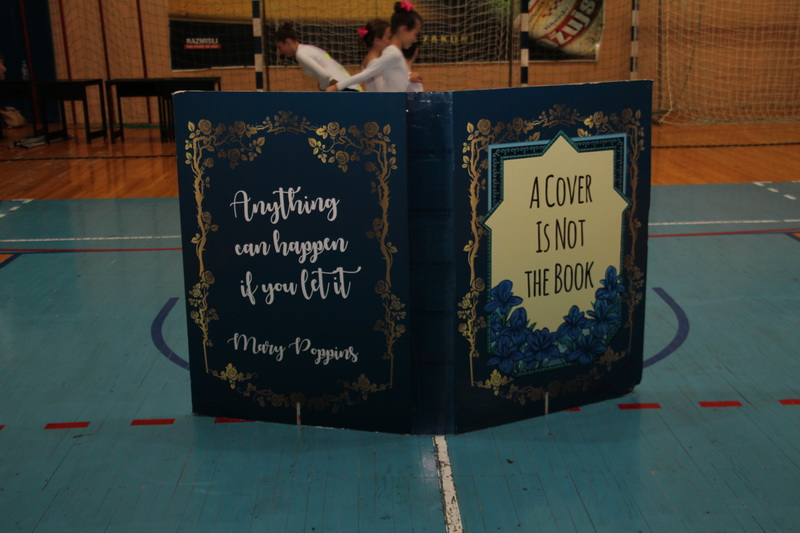 RAZMISLI
ZAKUN
ŽUJS
Anything
can happen
if you let it
Mary Poppins
A COVER
IS NOT
THE BOOK